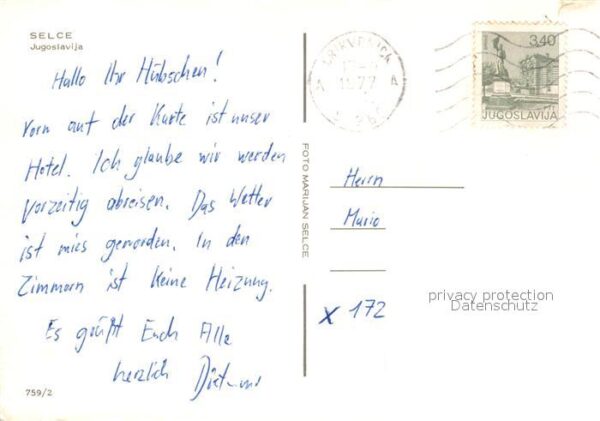 SELCE
Jugoslavija
Hallo Ihr Hübschen!
Vorn auf der Karte ist unser
Hotel. Ich glaube wir werden
vorzeitig abreisen. Das Wetter
ist mies geworden. In den
Zimmern ist keine Heizung.
Es grüßt Euch Alle
herzlich
759/2
FOTO MARIJAN SELCE
1977
3,40
JUGOSLAVIJA
Herrn
Mario
x 172
privacy protection
Datenschutz